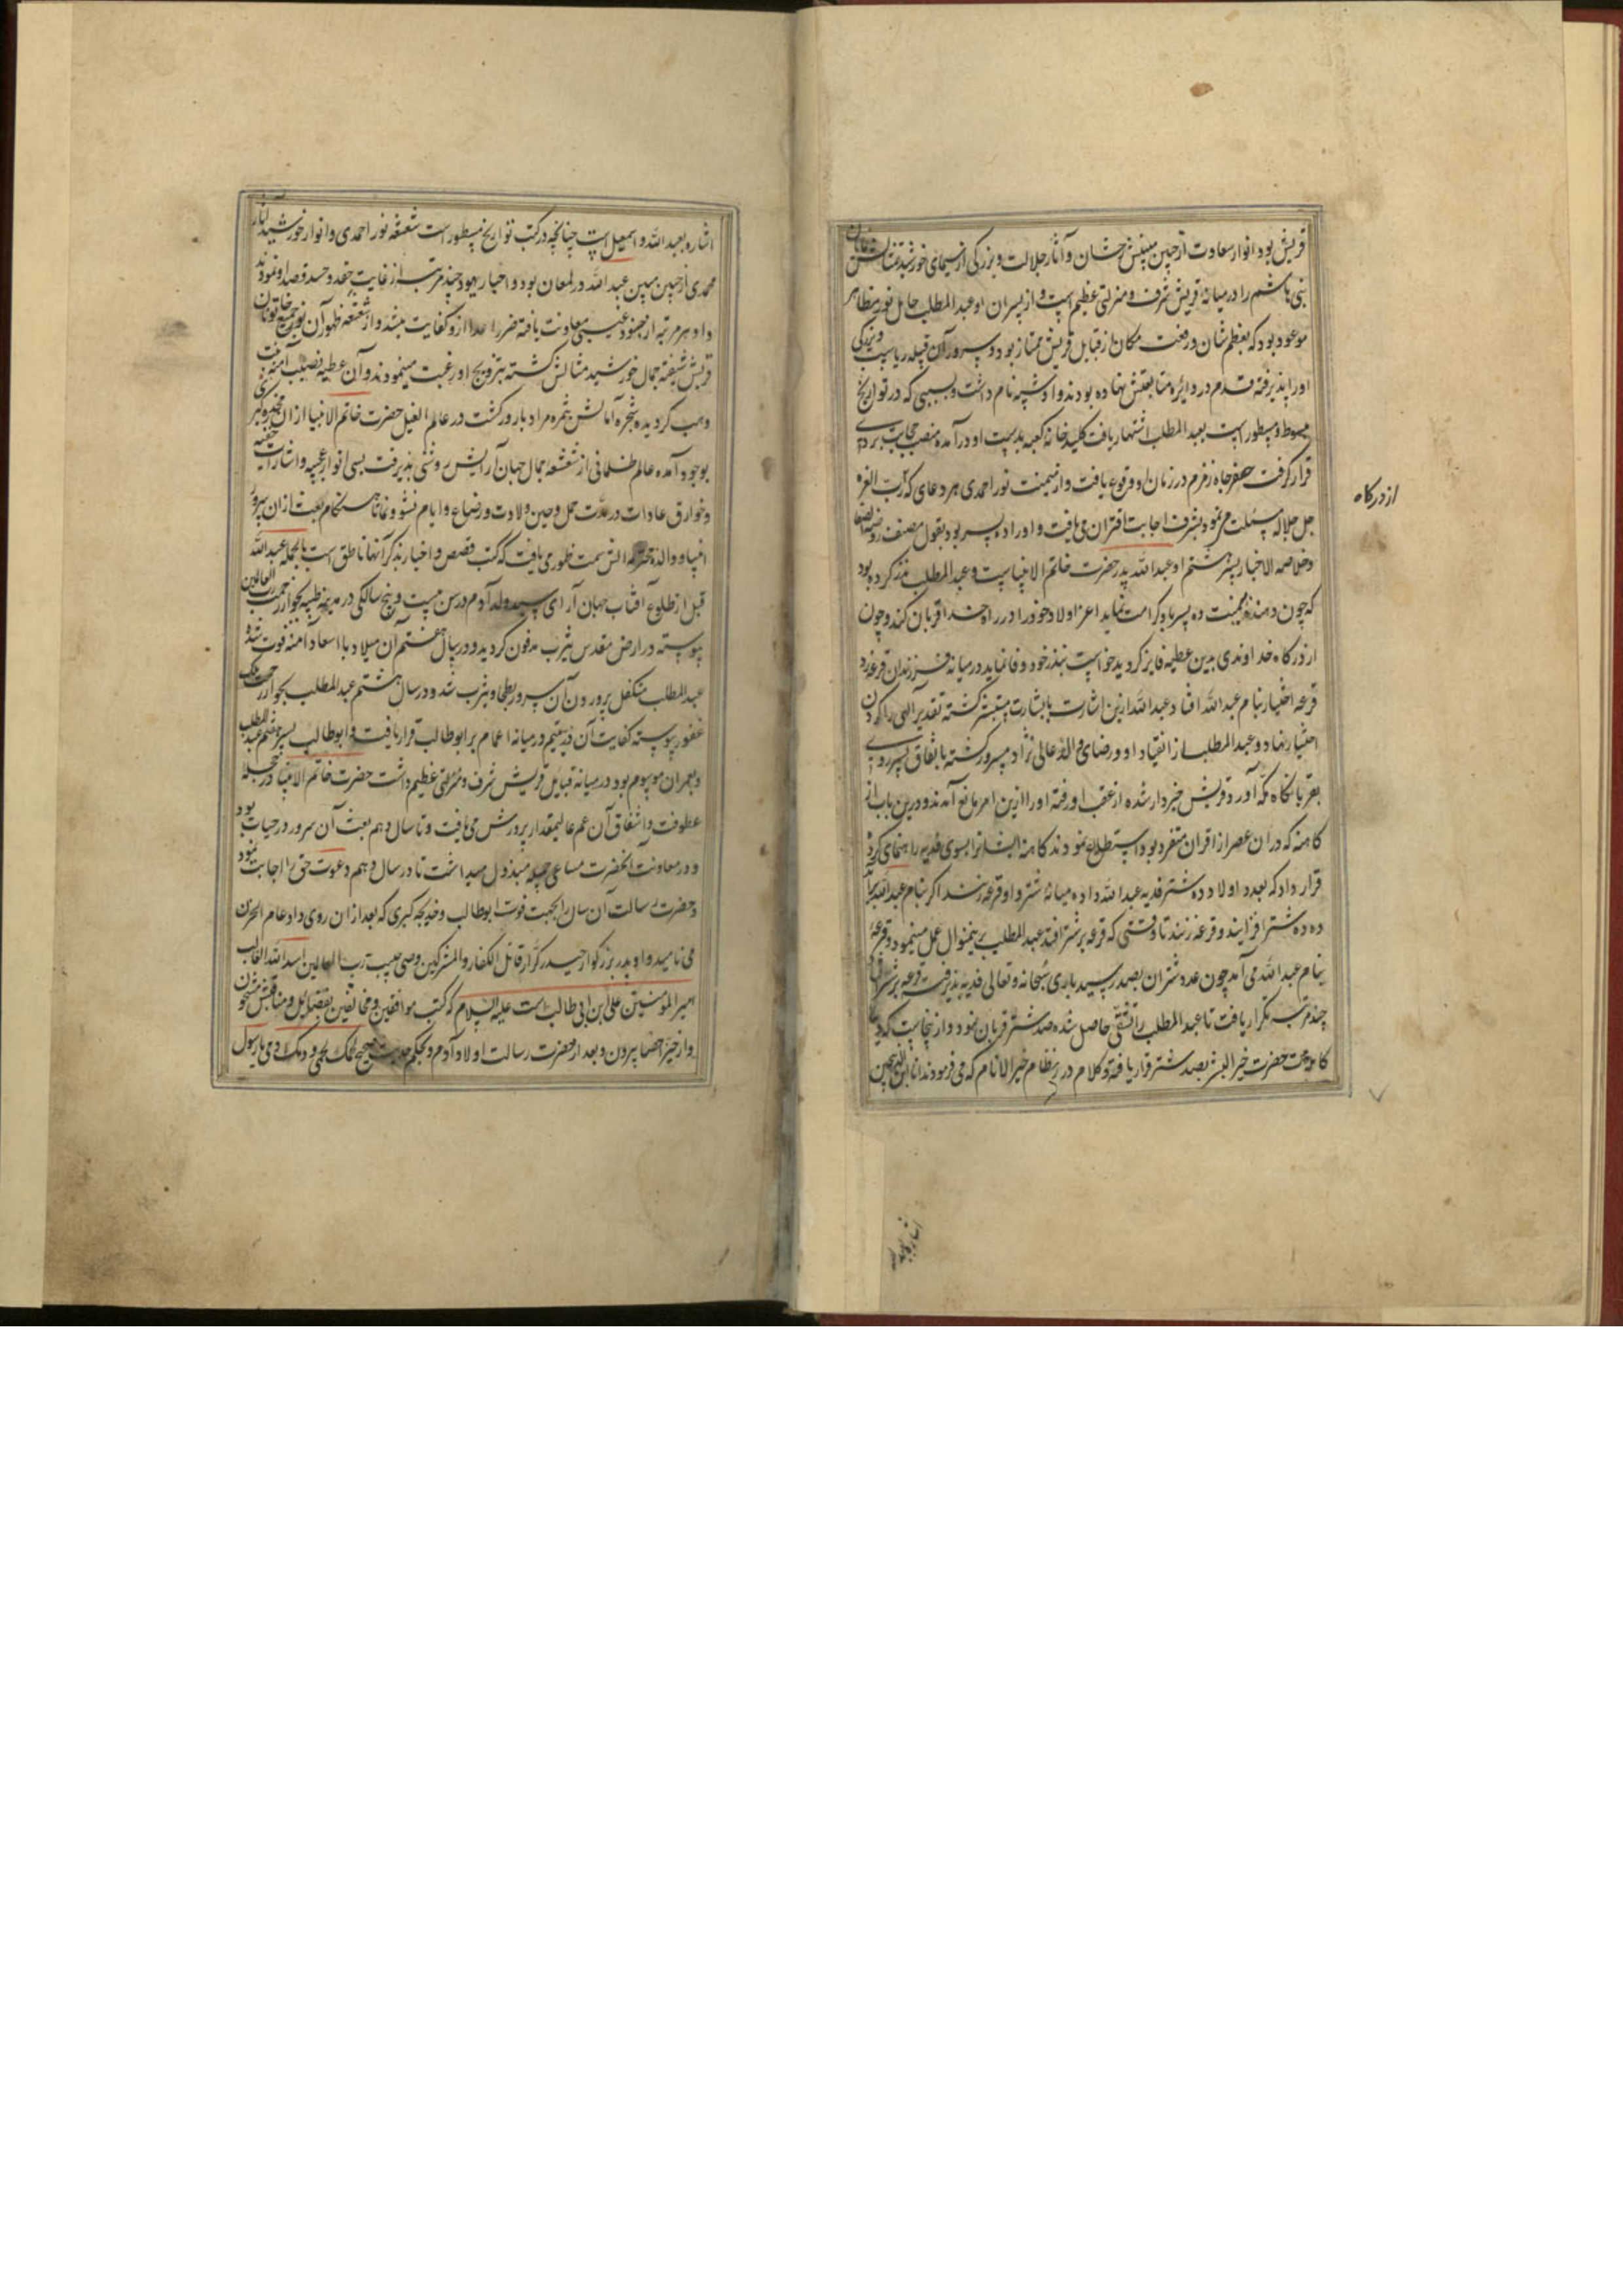 قریش بود انوار سعادت از جبین مبینش رخشان و آثار جلالت و بزرکی از سیمای خورشید مثالش تابان
بنی هاشم را در میانه قریش شرف و منزلتی عظیم است و از پسران او عبد المطلب حامل نور مظاهر
موعود بود که بعظم شان و رفعت مکان از قبایل قریش ممتاز بود و سرور آن قبیله ریاست و بزرکی
اورا پذیرفته قدم در دایره متابعتش نهاده بودند و او شیبه نام داشت و بسببی که در تواریخ
مبسوط و مسطور است بعبد المطلب اشتهار یافت کلید خانه کعبه بدست او در آمده منصب حجابت بر وی
قرار کرفت حفر چاه زمزم در زمان او وقوع یافت و از میمنت نور احمدی هر دعای که از رب العزه
جل جلاله مسئلت می نمود بشرف اجابت اقتران می یافت و اورا ده پسر بود بقول مصنف روضة الصفا
و خلاصه الاخبار پسر هشتم او عبد الله پدر حضرت خاتم الانبیاست و عبد المطلب نذر کرده بود
که چون واهب بیمنت ده پسر باو کرامت نماید اعز اولاد خود را در راه خدا قربان کند و چون
از درکاه خداوندی بدین عطیه فایز کردید خواست بنذر خود وفا نماید در میانه فرزندان قرعه زد
قرعه اختیار بنام عبد الله افتاد عبد الله ازین اشارت با بشارت مستبشر کشته تقدیر الهی را کردن
اختیار نهاد و عبد المطلب از انقیاد او و رضای والد عالی نژاد مسرور کشته باتفاق پسر روی
بقربانکاه مکه آورد قریش خبردار شده از عقب او رفته اورا ازین امر مانع آمدند و درین باب از
کاهنه که دران عصر از اقران متفرد بود استطلاع نمودند کاهنه ایشانرا بسوی فدیه راهنمای کرده
قرار داد که بعدد اولاد ده شتر فدیه عبد الله داده میانه شتر و او قرعه زنند اکر بنام عبد الله برآید
ده ده شتر افزایند و قرعه زنند تا وقتی که قرعه بر شتر افتد عبد المطلب برینمنوال عمل مینمود و قرعه
بنام عبد الله می آمد چون عدد شتران بصد رسید باری سبحانه و تعالی فدیه پذیرفت قرعه بر شتر افتاد
چند مرتبه تکرار یافت تا عبد المطلب را تشفی حاصل شده صد شتر قربان نمود و از ینجاست که دیة
کامله امت حضرت خیر البشر بصد شتر قرار یافته و کلام درر نظام خیر الانام که می فرمودند انا ابن الذبیحین
از درکاه
اشاره بعبد الله
اشاره بعبد الله و اسمعیل است چنانچه در کتب تواریخ مسطور است شعشعه نور احمدی و انوار خورشید آثار
محمدی از جبین مبین عبد الله در لمعان بود و احبار یهود چند مرتبه از غایت حقد و حسد قصد او نمودند
و او هر مرتبه از جنود غیبی معاونت یافته ضرر اعدا ازو کفایت میشد و از شعشعه ظهور آن نور جمیع خاتونان
قریش شیفته جمال خورشید مثالش کشته بتزویج او رغبت مینمودند و آن عطیه نصیب آمنه بنت
وهب کردیده شجره آمالش بثمره مراد بارور کشت در عام الفیل حضرت خاتم الانبیا از ان
بوجود آمده عالم ظلمانی از شعشعه جمال جهان آرایش روشنی پذیرفت بسی انوار عجیبه و اشارات
و خوارق عادات در مدت حمل و حین ولادت و رضاع و ایام نشو و نما تا هنکام بعثت از ان سرور
انبیا و والده محترمه اش سمت ظهوری یافت که کتب قصص و اخبار بذکر آنها ناطق است بالجمله عبد الله
قبل از طلوع آفتاب جهان آرای سید ولد آدم در سن بیست و پنج سالکی در مدینه طیبه بجوار رحمت رب العالمین
پیوسته در ارض مقدس یثرب مدفون کردید و در سال هشتم آن میلاد با اسعاد آمنه فوت شد و
عبد المطلب متکفل پرورون آن سرور بطحا و یثرب شد و در سال هشتم عبد المطلب بجوار رحمت ملک
غفور پیوسته کفایت آن در یتیم در میانه اعمام بر ابو طالب قرار یافت و ابو طالب پسر هفتم عبد المطلب
و بعمران موسوم بود در میانه قبایل قریش شرف و منزلتی عظیم داشت حضرت خاتم الانبیا در حجله
عطوفت و اشفاق آن عم عالیمقدار پرورش می یافت و تا سال دهم بعثت آن سرور در حیات بود
و در معاونت آنحضرت مساعی جمیله مبذول میداشت تا در سال دهم دعوت حق را اجابت نمود
و حضرت رسالت آن سال را بجهت فوت ابو طالب و خدیجه کبری که بعد از ان روی داد عام الحزن
می نامید و او پدر بزرکوار حیدر کرار قاتل الکفار والمشرکین وصی حبیب رب العالمین اسد الله الغالب
امیر المومنین علی ابن ابی طالب است علیه السلام که کتب موافقین و مخالفین بفضایل و مناقبش مشحون
و از حیز احصا بیرون و بعد از حضرت رسالت اولاد آدم و بحکم حدیث صحیح لحمک لحمی و دمک دمی با رسول